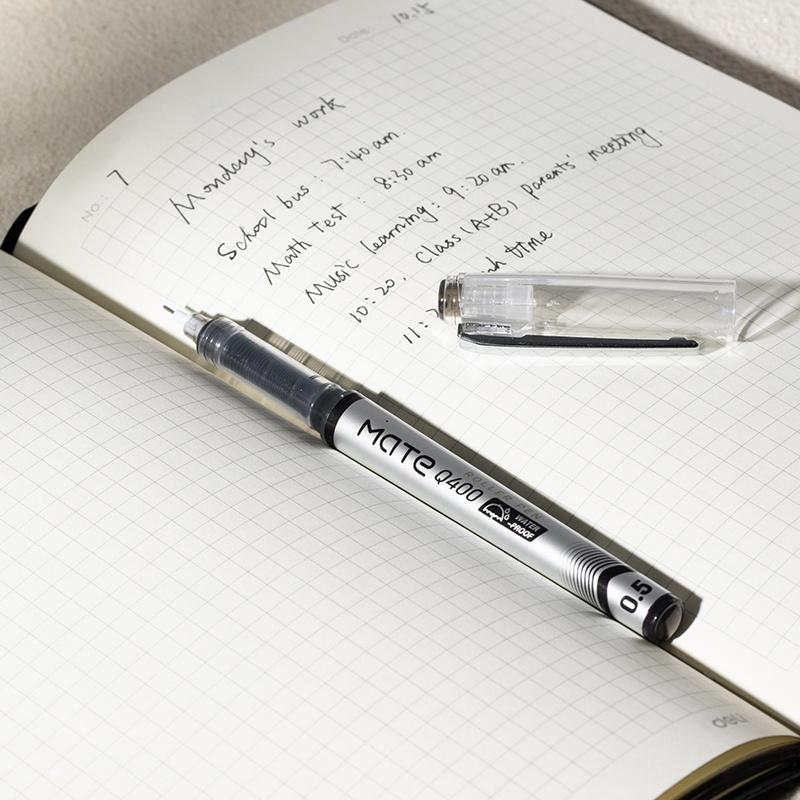 Date: 10.15
No.: 7
Monday's work
School bus: 7:40 am.
Math test: 8:30 am
Music learning: 9:20 am.
10:20. Class (A+B) parents' meeting.
time
MATE Q400
ROLLER PEN
WATER
-PROOF
0.5
deli